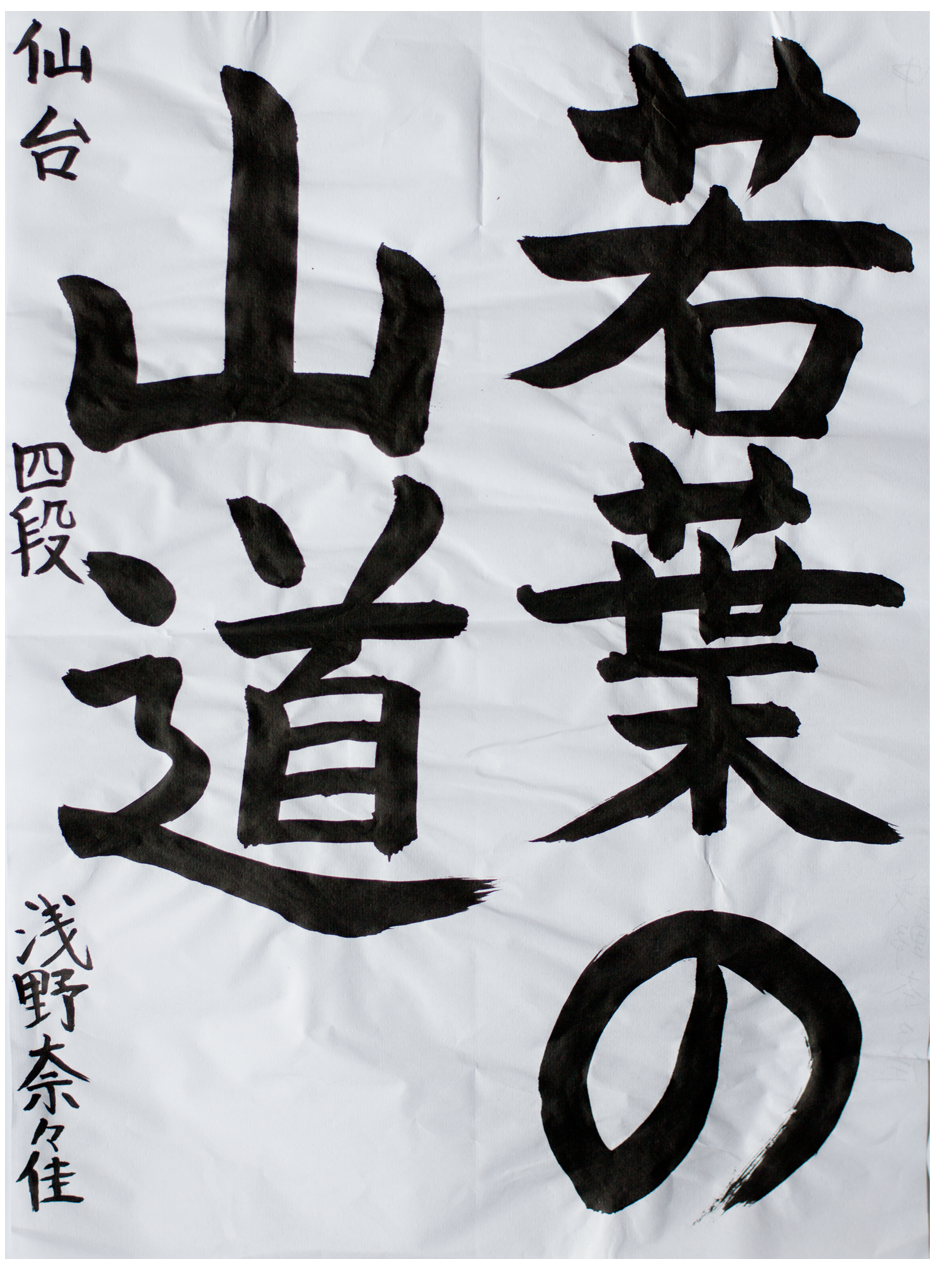 若葉の
山道
仙台 四段 浅野奈々佳